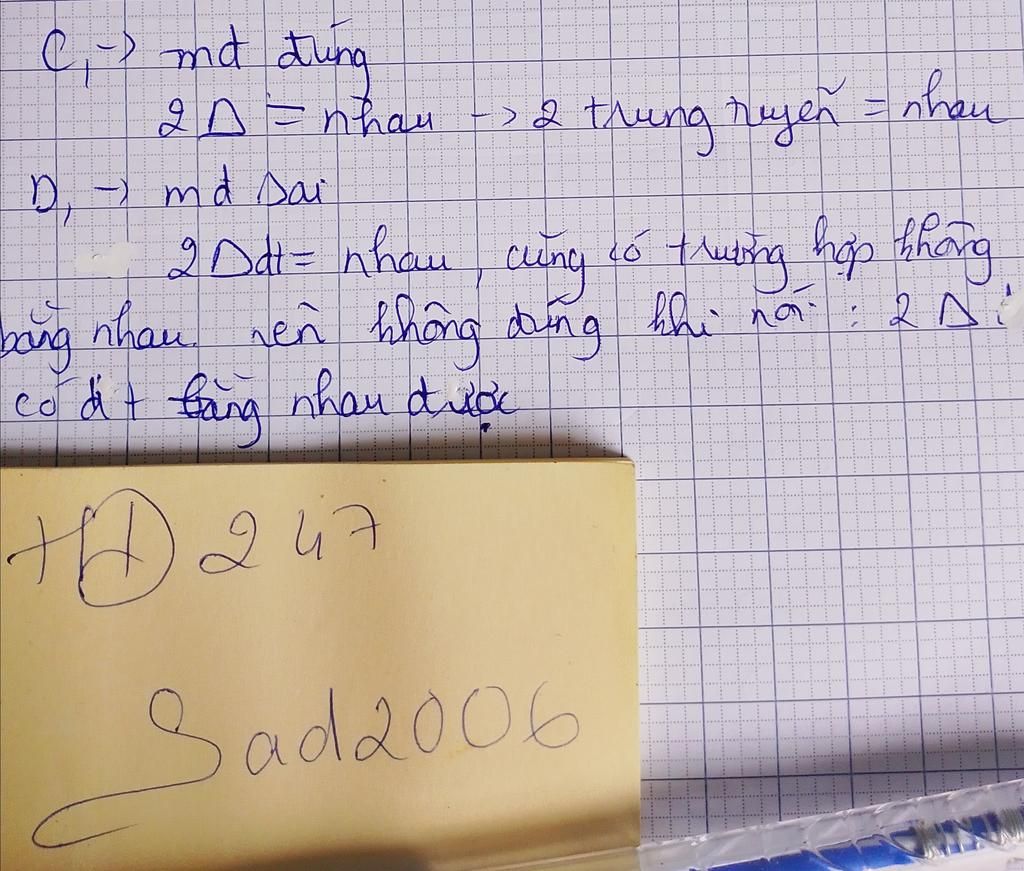 C, -> mđ đúng
2Δ = nhau -> 2 trung tuyến = nhau
D, -> mđ sai
2Δ dt = nhau, cũng có trường hợp không
bằng nhau. nên không đúng khi nói : 2 Δ
có dt bằng nhau được
247
Sad2006